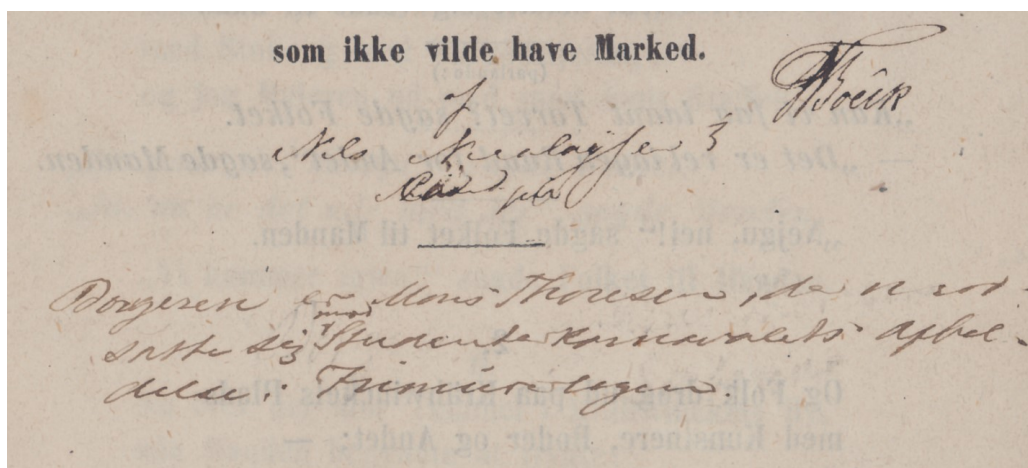 som ikke vilde have Marked.
af
Nils Nicolaysen
Borgeren er Mons Thoresen, der mod-
satte sig Studenterkarnavalets afhol-
delse i Frimurerlogen.